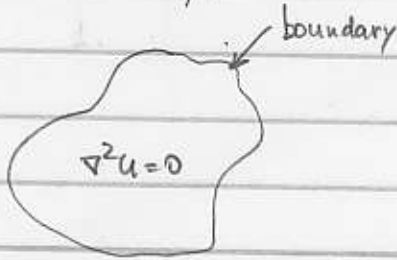 boundary
∇²u=0